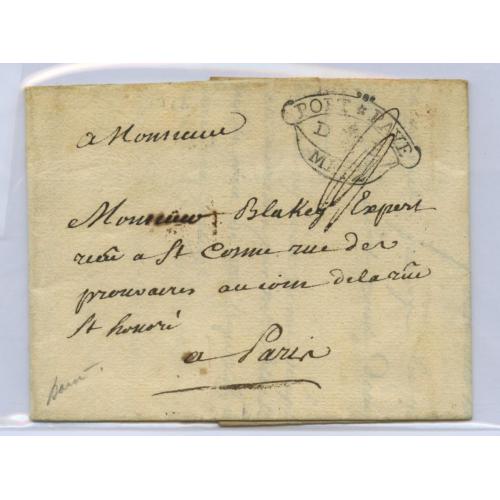 PORT PAYÉ
D
a Monsieur
Monsieur Blakey Expert
recu a St Cosme rue des
prouvaires au coin de la rüe
St honoré
a Paris